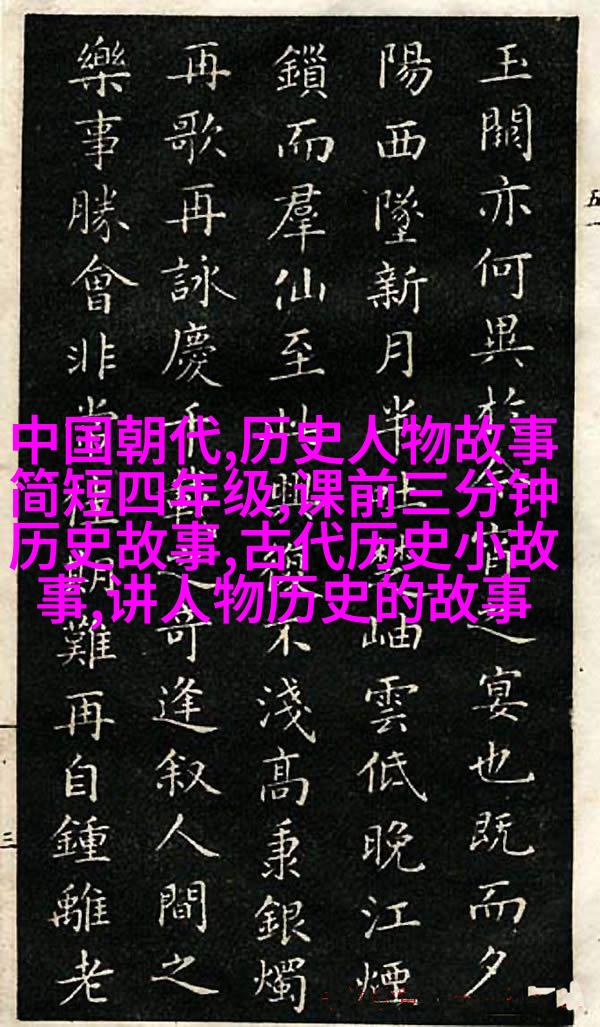 玉闕亦何異於宵之宴也既而夕
陽西墜新月半吐楚岫雲低晚江煙
鎖而羣仙至此興復不淺高秉銀燭
再歌再詠慶千之奇逢叙人間之
樂事勝會非常佳期難再自鍾離老
中国朝代,历史人物故事
简短四年级,课前三分钟
历史故事,古代历史小故
事,讲人物历史的故事
五一
三